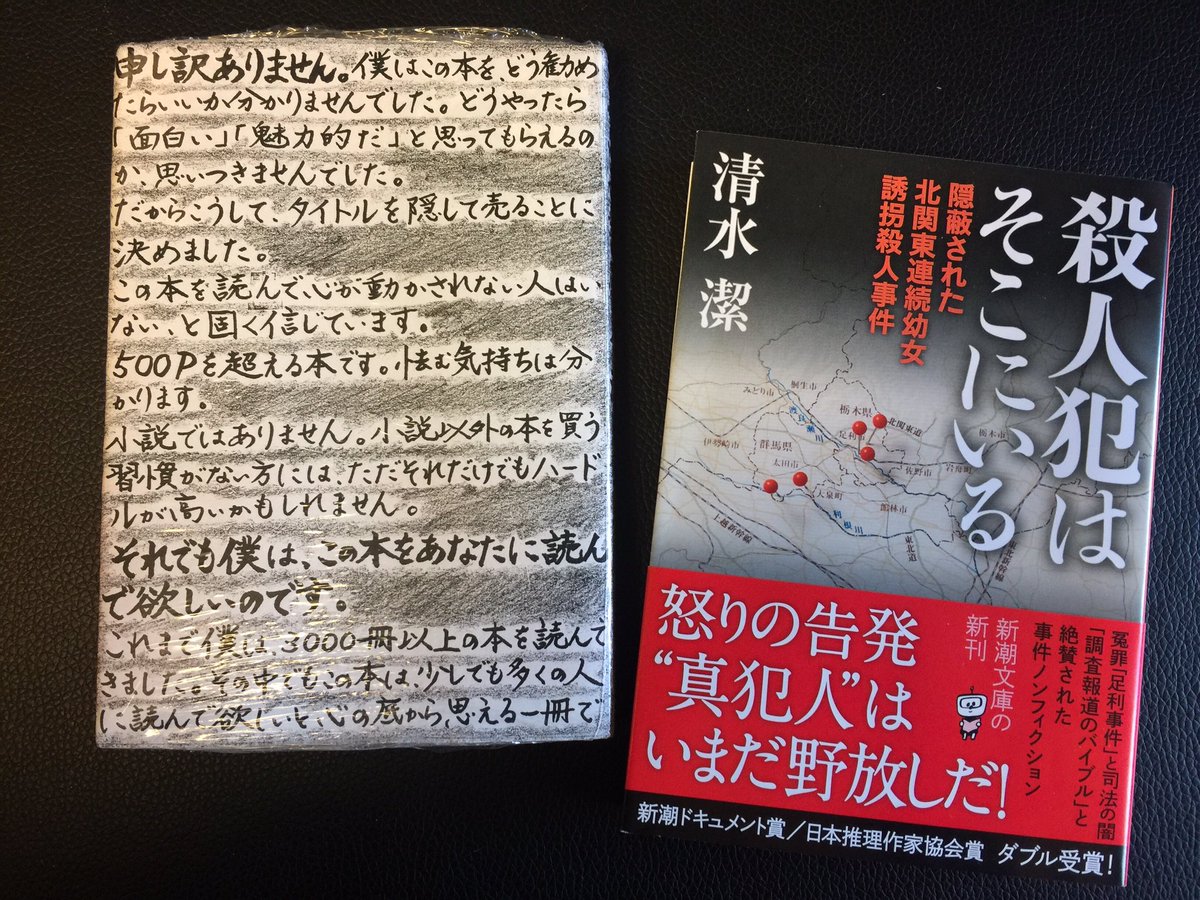 申し訳ありません。僕はこの本を、どう勧め
たらいいか分かりませんでした。どうやったら
「面白い」「魅力的だ」と思ってもらえるの
か、思いつきませんでした。
だからこうして、タイトルを隠して売ることに
決めました。
この本を読んで心が動かされない人はい
ない、と固く信じています。
500Pを超える本です。怯む気持ちは分
かります。
小説ではありません。小説以外の本を買う
習慣がない方には、ただそれだけでもハード
ルが高いかもしれません。
それでも僕は、この本をあなたに読ん
で欲しいのです。
これまで僕は、3000冊以上の本を読んで
きました。その中でもこの本は、少しでも多くの人
に読んで欲しいと、心の底から思える一冊で
殺人犯は
そこにいる
隠蔽された
北関東連続幼女
誘拐殺人事件
清水 潔
みどり市
桐生市
渡良瀬川
栃木県
足利市
北関東道
栃木市
佐野市
岩舟町
伊勢崎市
群馬県
太田市
大泉町
館林市
利根川
上越新幹線
東北道
東北新幹線
冤罪「足利事件」と司法の闇
「調査報道のバイブル」と
絶賛された
事件ノンフィクション
新潮文庫の
新刊
怒りの告発
“真犯人”は
いまだ野放しだ!
新潮ドキュメント賞/日本推理作家協会賞 ダブル受賞!